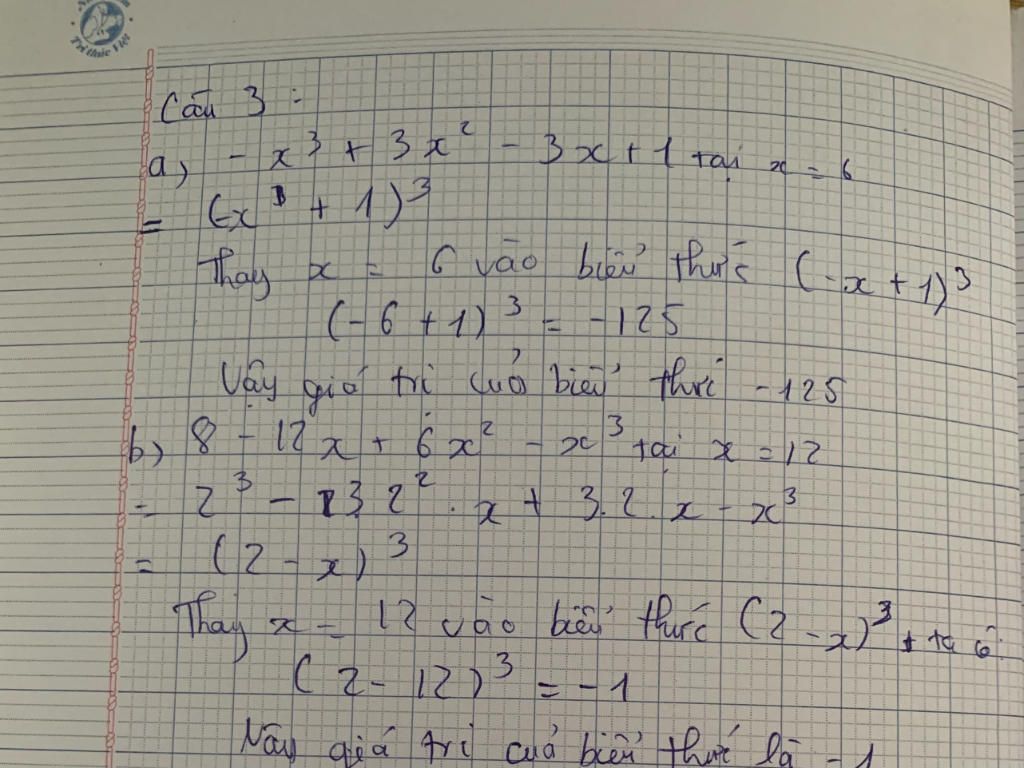 Trí thức Việt
Câu 3 :
a) - x³ + 3x² - 3x + 1 tại x = 6
= (-x + 1)³
Thay x = 6 vào biểu thức (-x + 1)³
(-6 + 1)³ = -125
Vậy giá trị của biểu thức -125
b) 8 - 12x + 6x² - x³ tại x = 12
= 2³ - 3 2² . x + 3.2.x - x³
= (2 - x)³
Thay x = 12 vào biểu thức (2 - x)³ + ta có:
(2 - 12)³ = -1
Vậy giá trị của biểu thức là -1